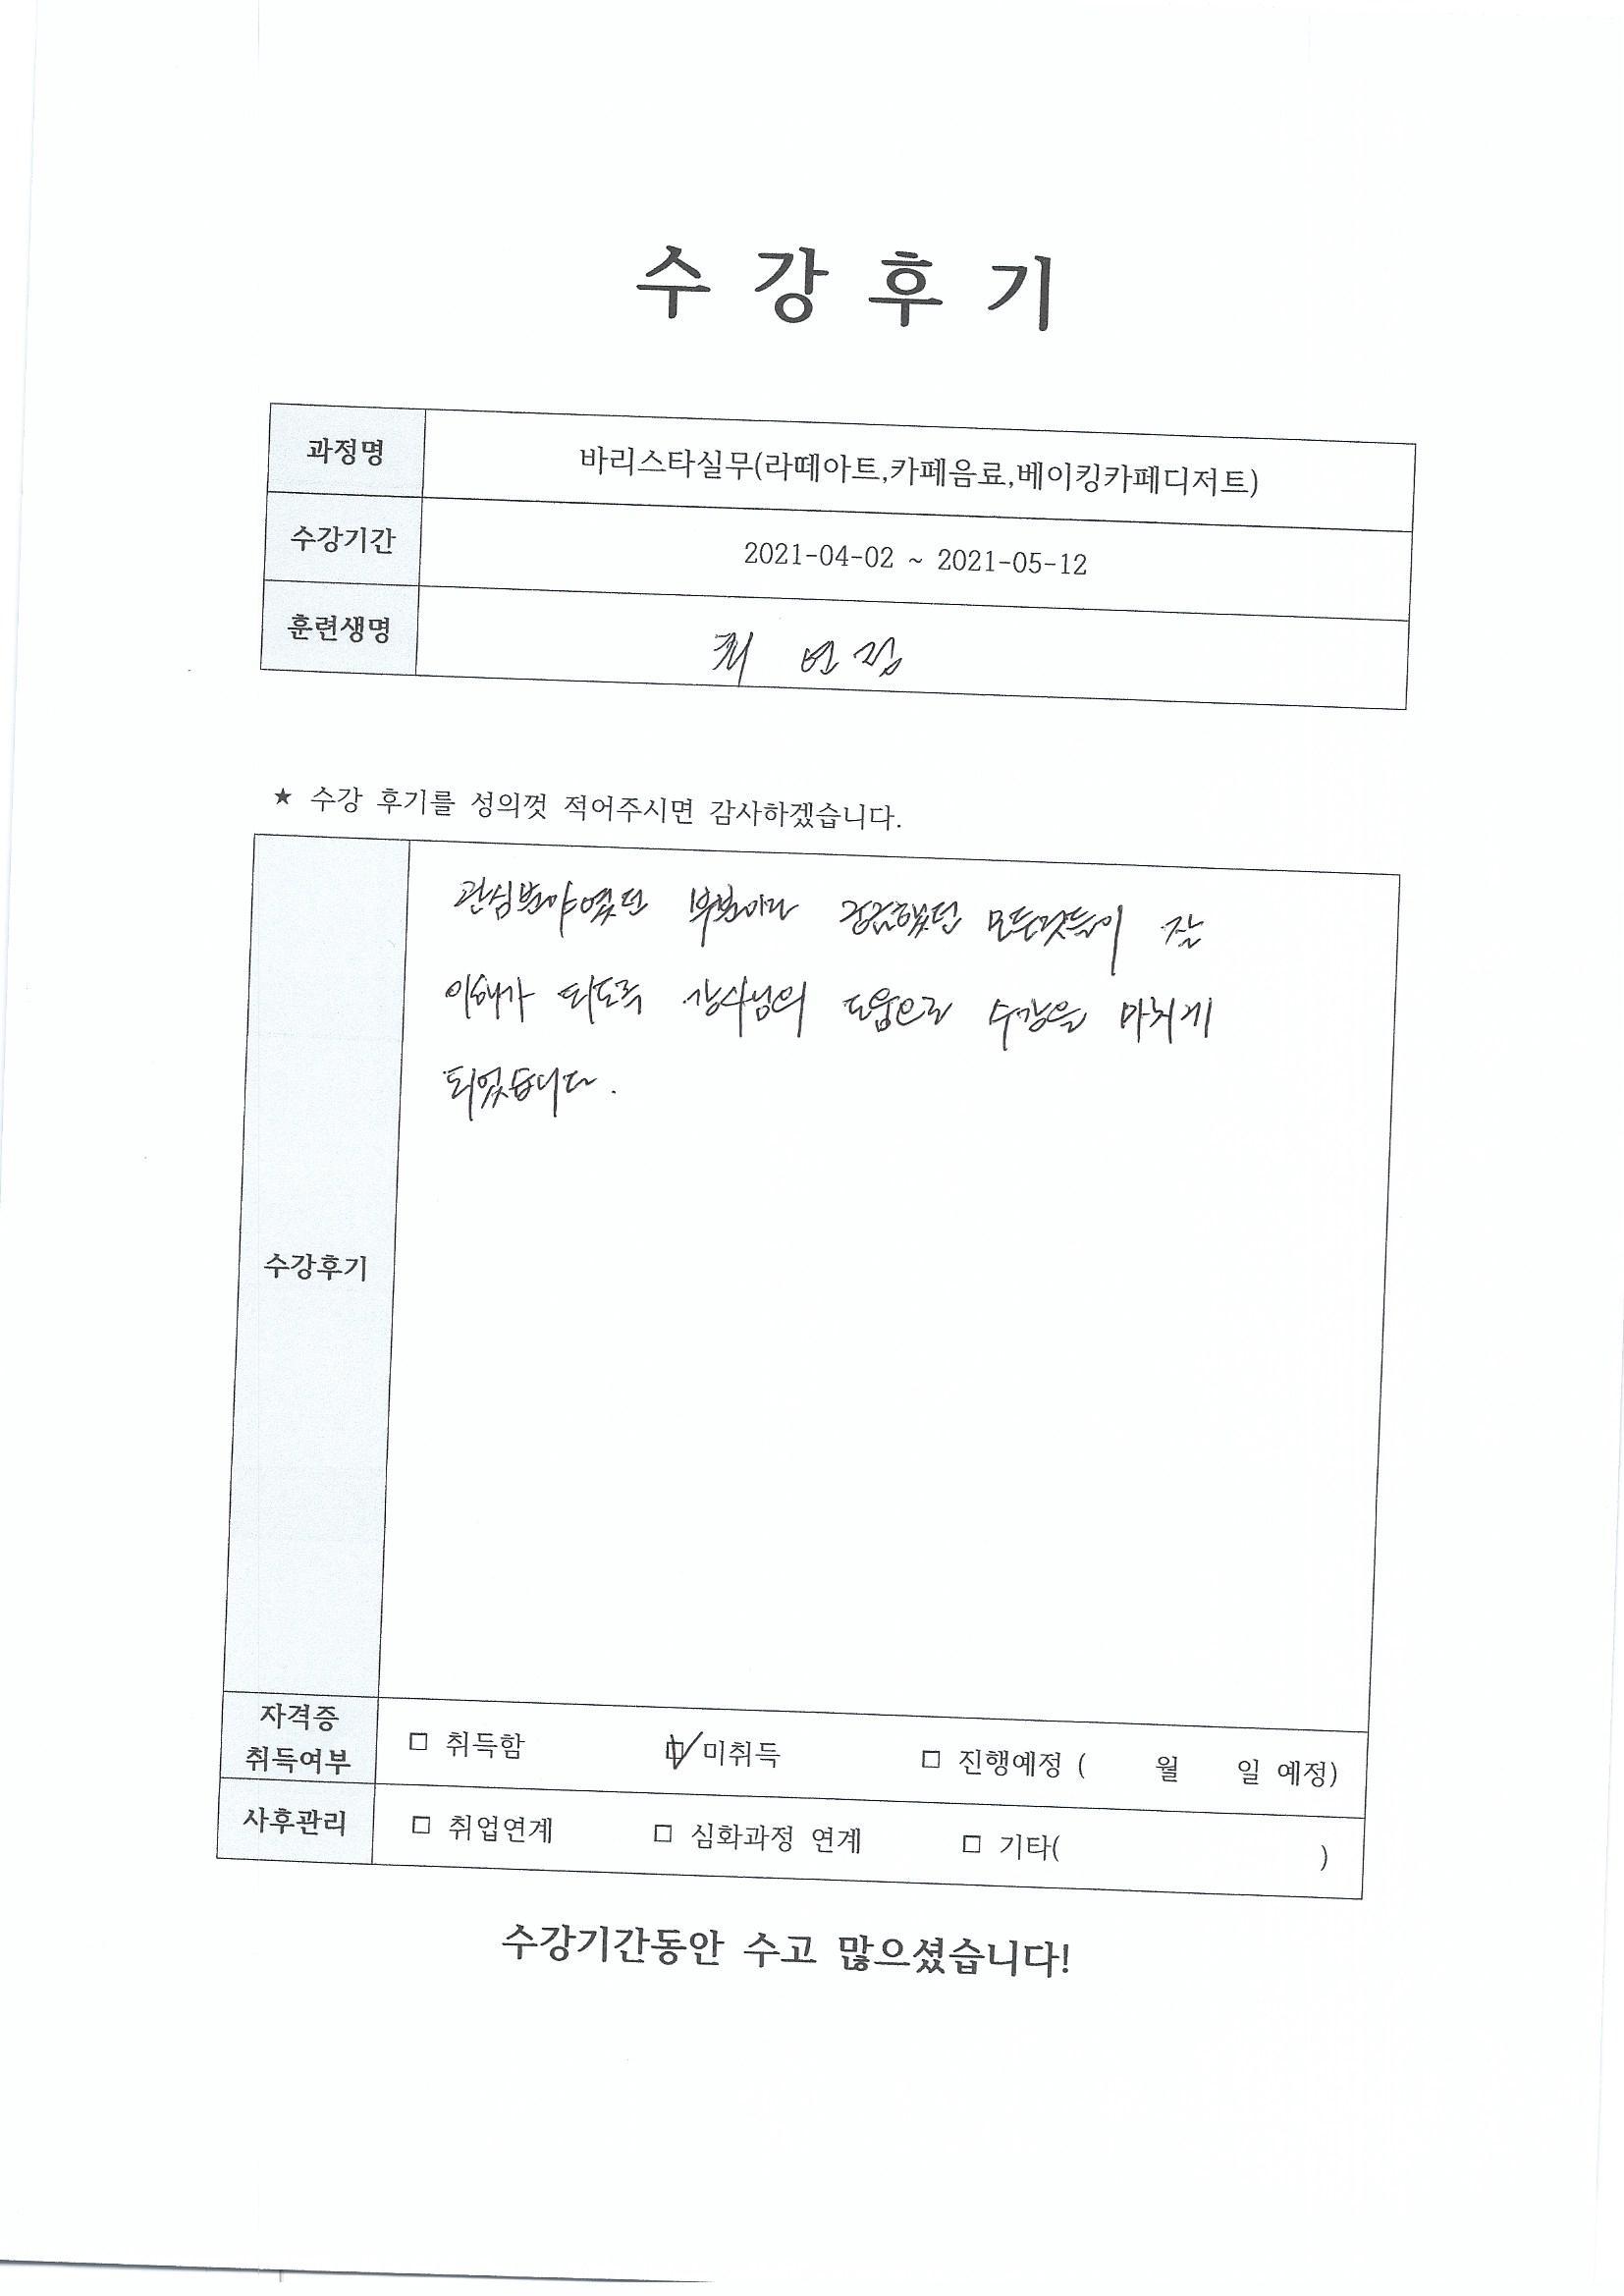 수 강 후 기
과정명 바리스타실무(라떼아트,카페음료,베이킹카페디저트)
수강기간 2021-04-02 ~ 2021-05-12
훈련생명 최
★ 수강 후기를 성의껏 적어주시면 감사하겠습니다.
관심분야였던 부분이라 궁금했던 모든것들이 잘
이해가 되도록 강사님의 도움으로 수강을 마치게
되었습니다.
수강후기
자격증
취득여부 □ 취득함 ☑ 미취득 □ 진행예정 ( 월 일 예정)
사후관리 □ 취업연계 □ 심화과정 연계 □ 기타( )
수강기간동안 수고 많으셨습니다!